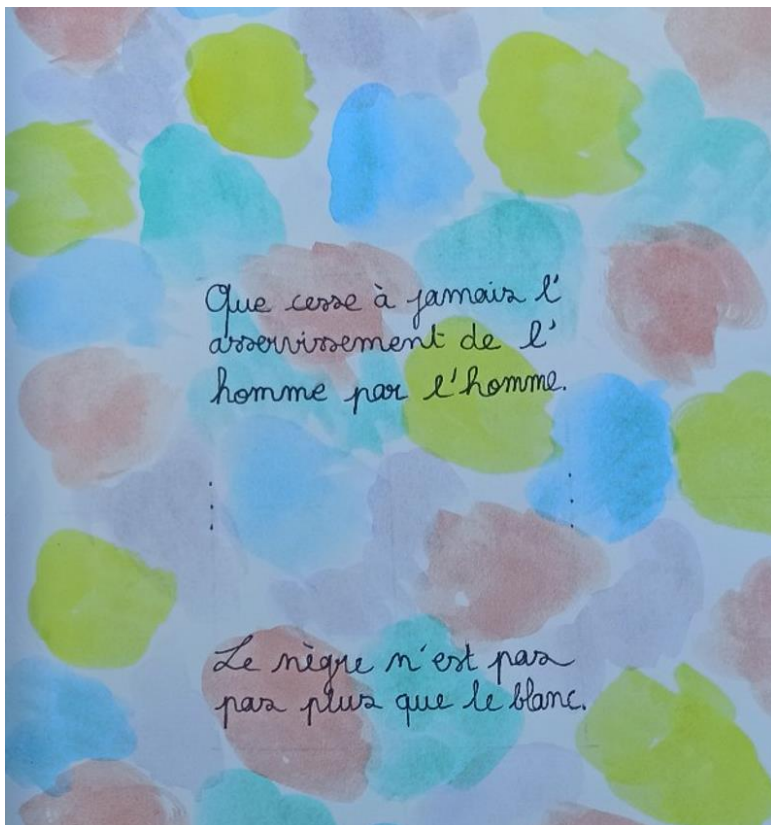 Que cesse à jamais l'
asservissement de l'
homme par l'homme.
Le nègre n'est pas
pas plus que le blanc.